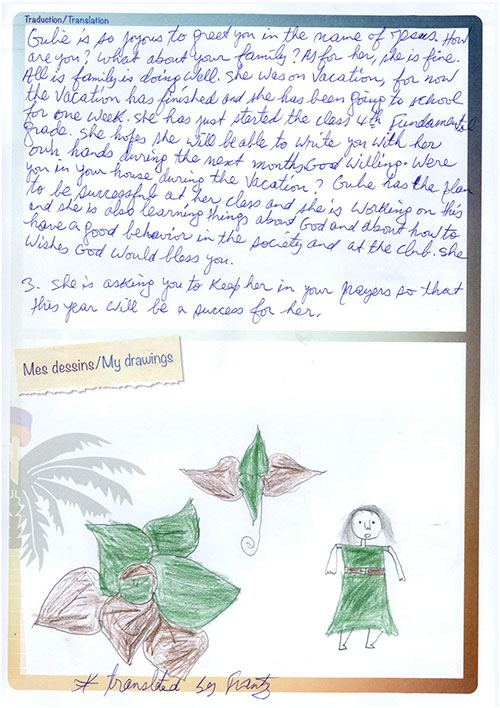 Traduction/Translation
Gulie is so joyous to greet you in the name of Jesus. How
are you? What about your family? As for her, she is fine.
All is family is doing well. She was on vacation, for now
the vacation has finished and she has been going to school
for one week. she has just started the class 4th Fundamental
grade. she hopes she will be able to write you with her
own hands during the next months, Good willing. Were
you in your house during the vacation? Gulie has the plan
to be successful at her class and she is working on this
and she is also learning things about God and about how to
have a good behavior in the society and at the club. she
wishes God would bless you.
3. she is asking you to keep her in your prayers so that
this year will be a success for her.
Mes dessins/My drawings
* translated by Frantz